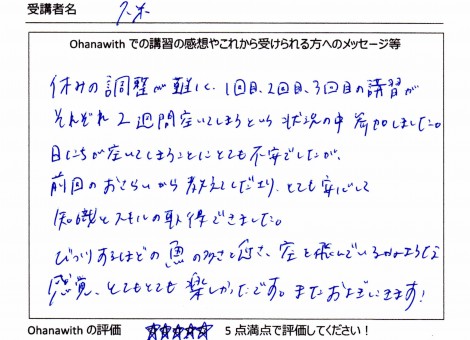 受講者名
Ohanawith での講習の感想やこれから受けられる方へのメッセージ等
休みの調整が難しく、1回目、2回目、3回目の講習が
それぞれ2週間空いてしまうという状況の中 参加しました。
日にちが空いてしまうことにとても不安でしたが、
前回のおさらいから教えてくださり、とても安心して
知識とスキルの取得できました。
びっくりするほどの魚の多さと近さ、空を飛んでいるかのような
感覚、とてもとても楽しかったです。またおよぎにきます!
Ohanawith の評価 ☆☆☆☆☆ 5点満点で評価してください!